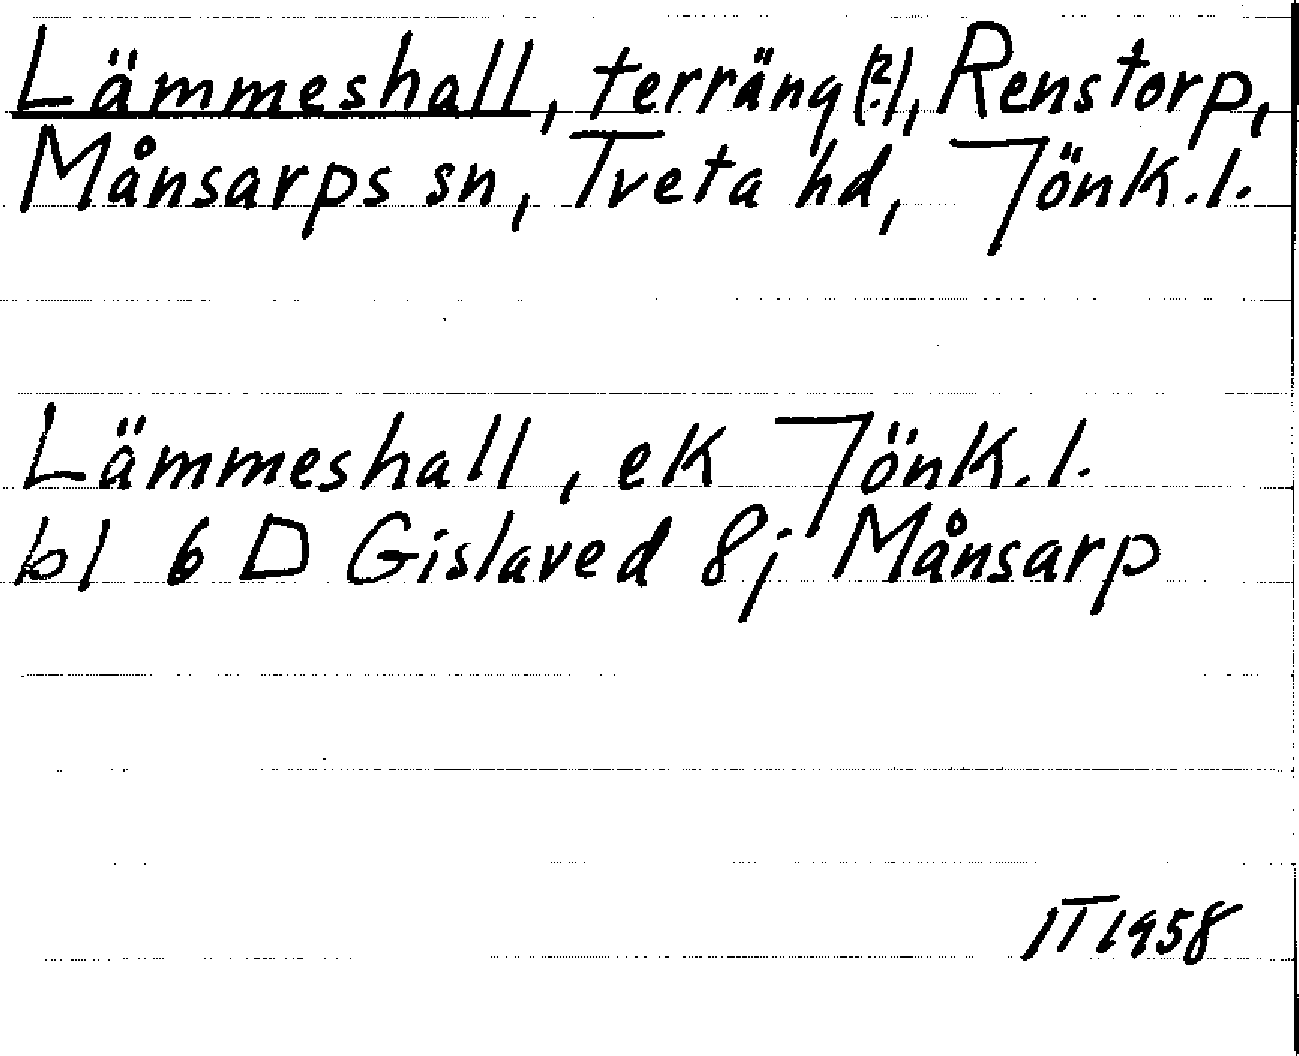 Lämmeshall, terräng (?), Renstorp,
Månsarps sn, Tveta hd, Jönk.l.
Lämmeshall, ek Jönk.l.
bl 6 D Gislaved 8j Månsarp
IT 1958